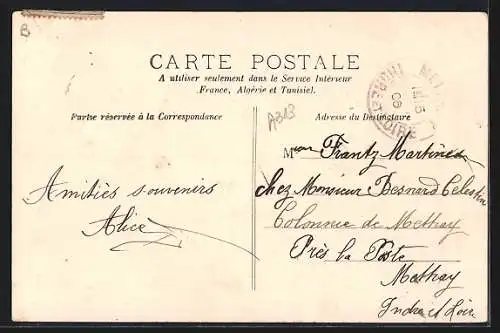 B
CARTE POSTALE
A utiliser seulement dans le Service Intérieur
(France, Algérie et Tunisie).
Partie réservée à la Correspondance
Adresse du Destinataire
A313
Amitiés souvenirs
Alice
Frantz Martinès
chez Monsieur Besnard Célestin
Colonnie de Mettray
Près la Poste
Mettray
Indre et Loire